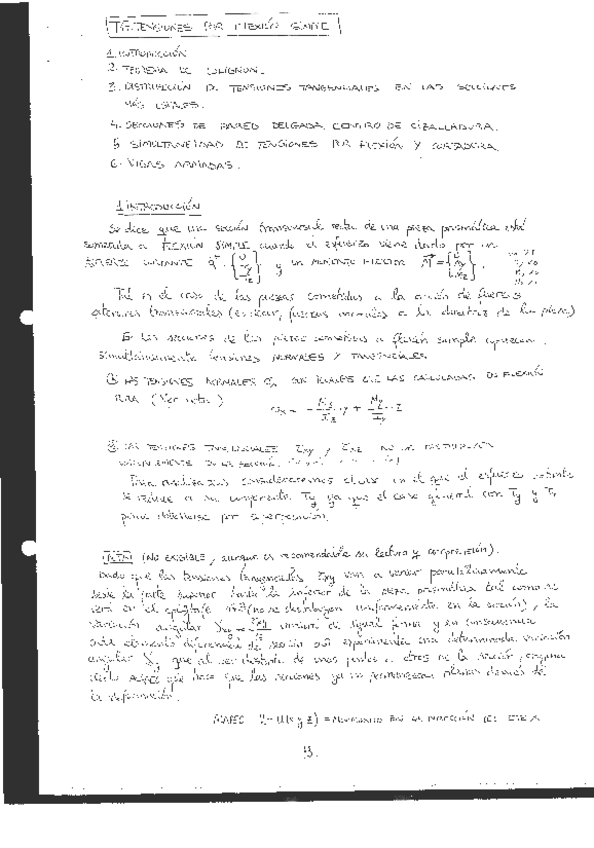 TENSIONES POR FLEXIÓN SIMPLE
1. INTRODUCCIÓN
2. TEOREMA DE COLIGNON.
3. DISTRIBUCIÓN DE TENSIONES TANGENCIALES EN LAS SECCIONES
MÁS USUALES.
4. SECCIONES DE PARED DELGADA. CENTRO DE CIZALLADURA.
5. SIMULTANEIDAD DE TENSIONES POR FLEXIÓN Y CORTADURA
6. VIGAS ARMADAS.
1. INTRODUCCIÓN
Se dice que una sección transversal recta de una pieza prismática está
sometida a FLEXIÓN SIMPLE cuando el esfuerzo viene dado por un
ESFUERZO CORTANTE y un MOMENTO FLECTOR
Tal es el caso de las piezas sometidas a la acción de fuerzas
exteriores transversales (es decir, fuerzas normales a la directriz de la pieza)
En las secciones de las piezas sometidas a flexión simple aparecen
simultáneamente tensiones NORMALES Y TANGENCIALES
① LAS TENSIONES NORMALES σx SON IGUALES QUE LAS CALCULADAS EN FLEXIÓN
PURA (Ver nota) σx = - Mz/Iz · y + My/Iy · z
② LAS TENSIONES TANGENCIALES τxy y τxz NO SE DISTRIBUYEN
UNIFORMEMENTE EN LA SECCIÓN.
Para analizarlas consideraremos el caso en el que el esfuerzo cortante
se reduce a su componente Ty ya que el caso general con Ty y Tz
puede obtenerse por superposición.
NOTA (NO EXIGIBLE, aunque es recomendable su lectura y comprensión).
Dado que las tensiones tangenciales τxy van a variar parabólicamente
desde la parte superior hasta la inferior de la pieza prismática tal como se
verá en el epígrafe nº3 (no se distribuyen uniformemente en la sección), la
variación angular γxy variará de igual forma y en consecuencia
cada elemento diferencial de sección así experimenta una determinada variación
angular γ, que al ser distinta de unos puntos a otros de la sección, origina
cierto ALABEO que hace que las secciones ya no permanezcan planas después de
la deformación.